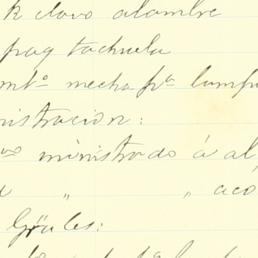 k clavo alambre
paq tachuela
mtº mecha pª lamp
nistracion:
ministrado á al
" " aco
Göules: